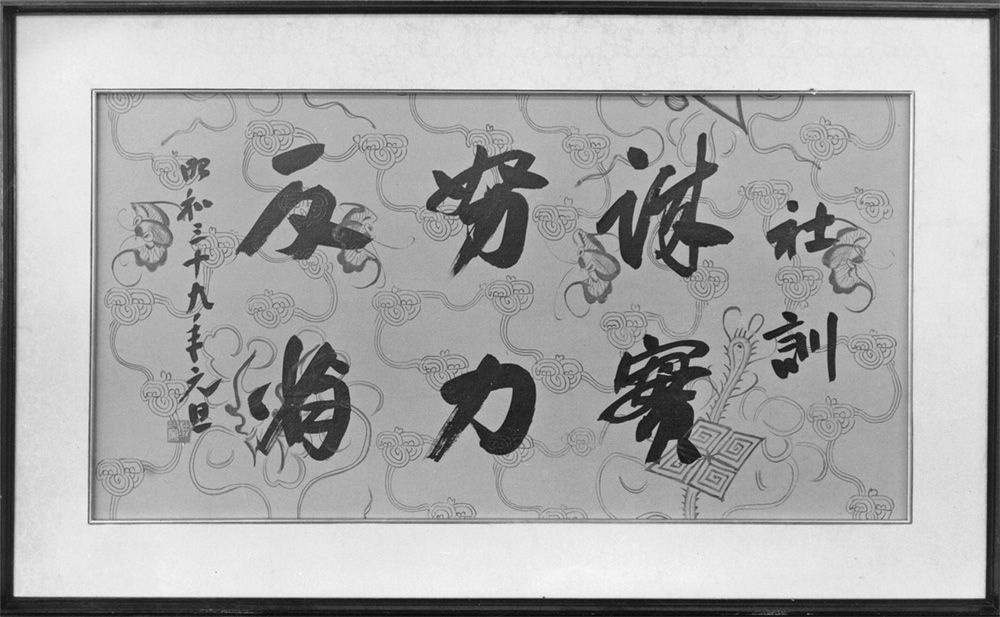 社訓
誠實
努力
反省
昭和三十九年元旦